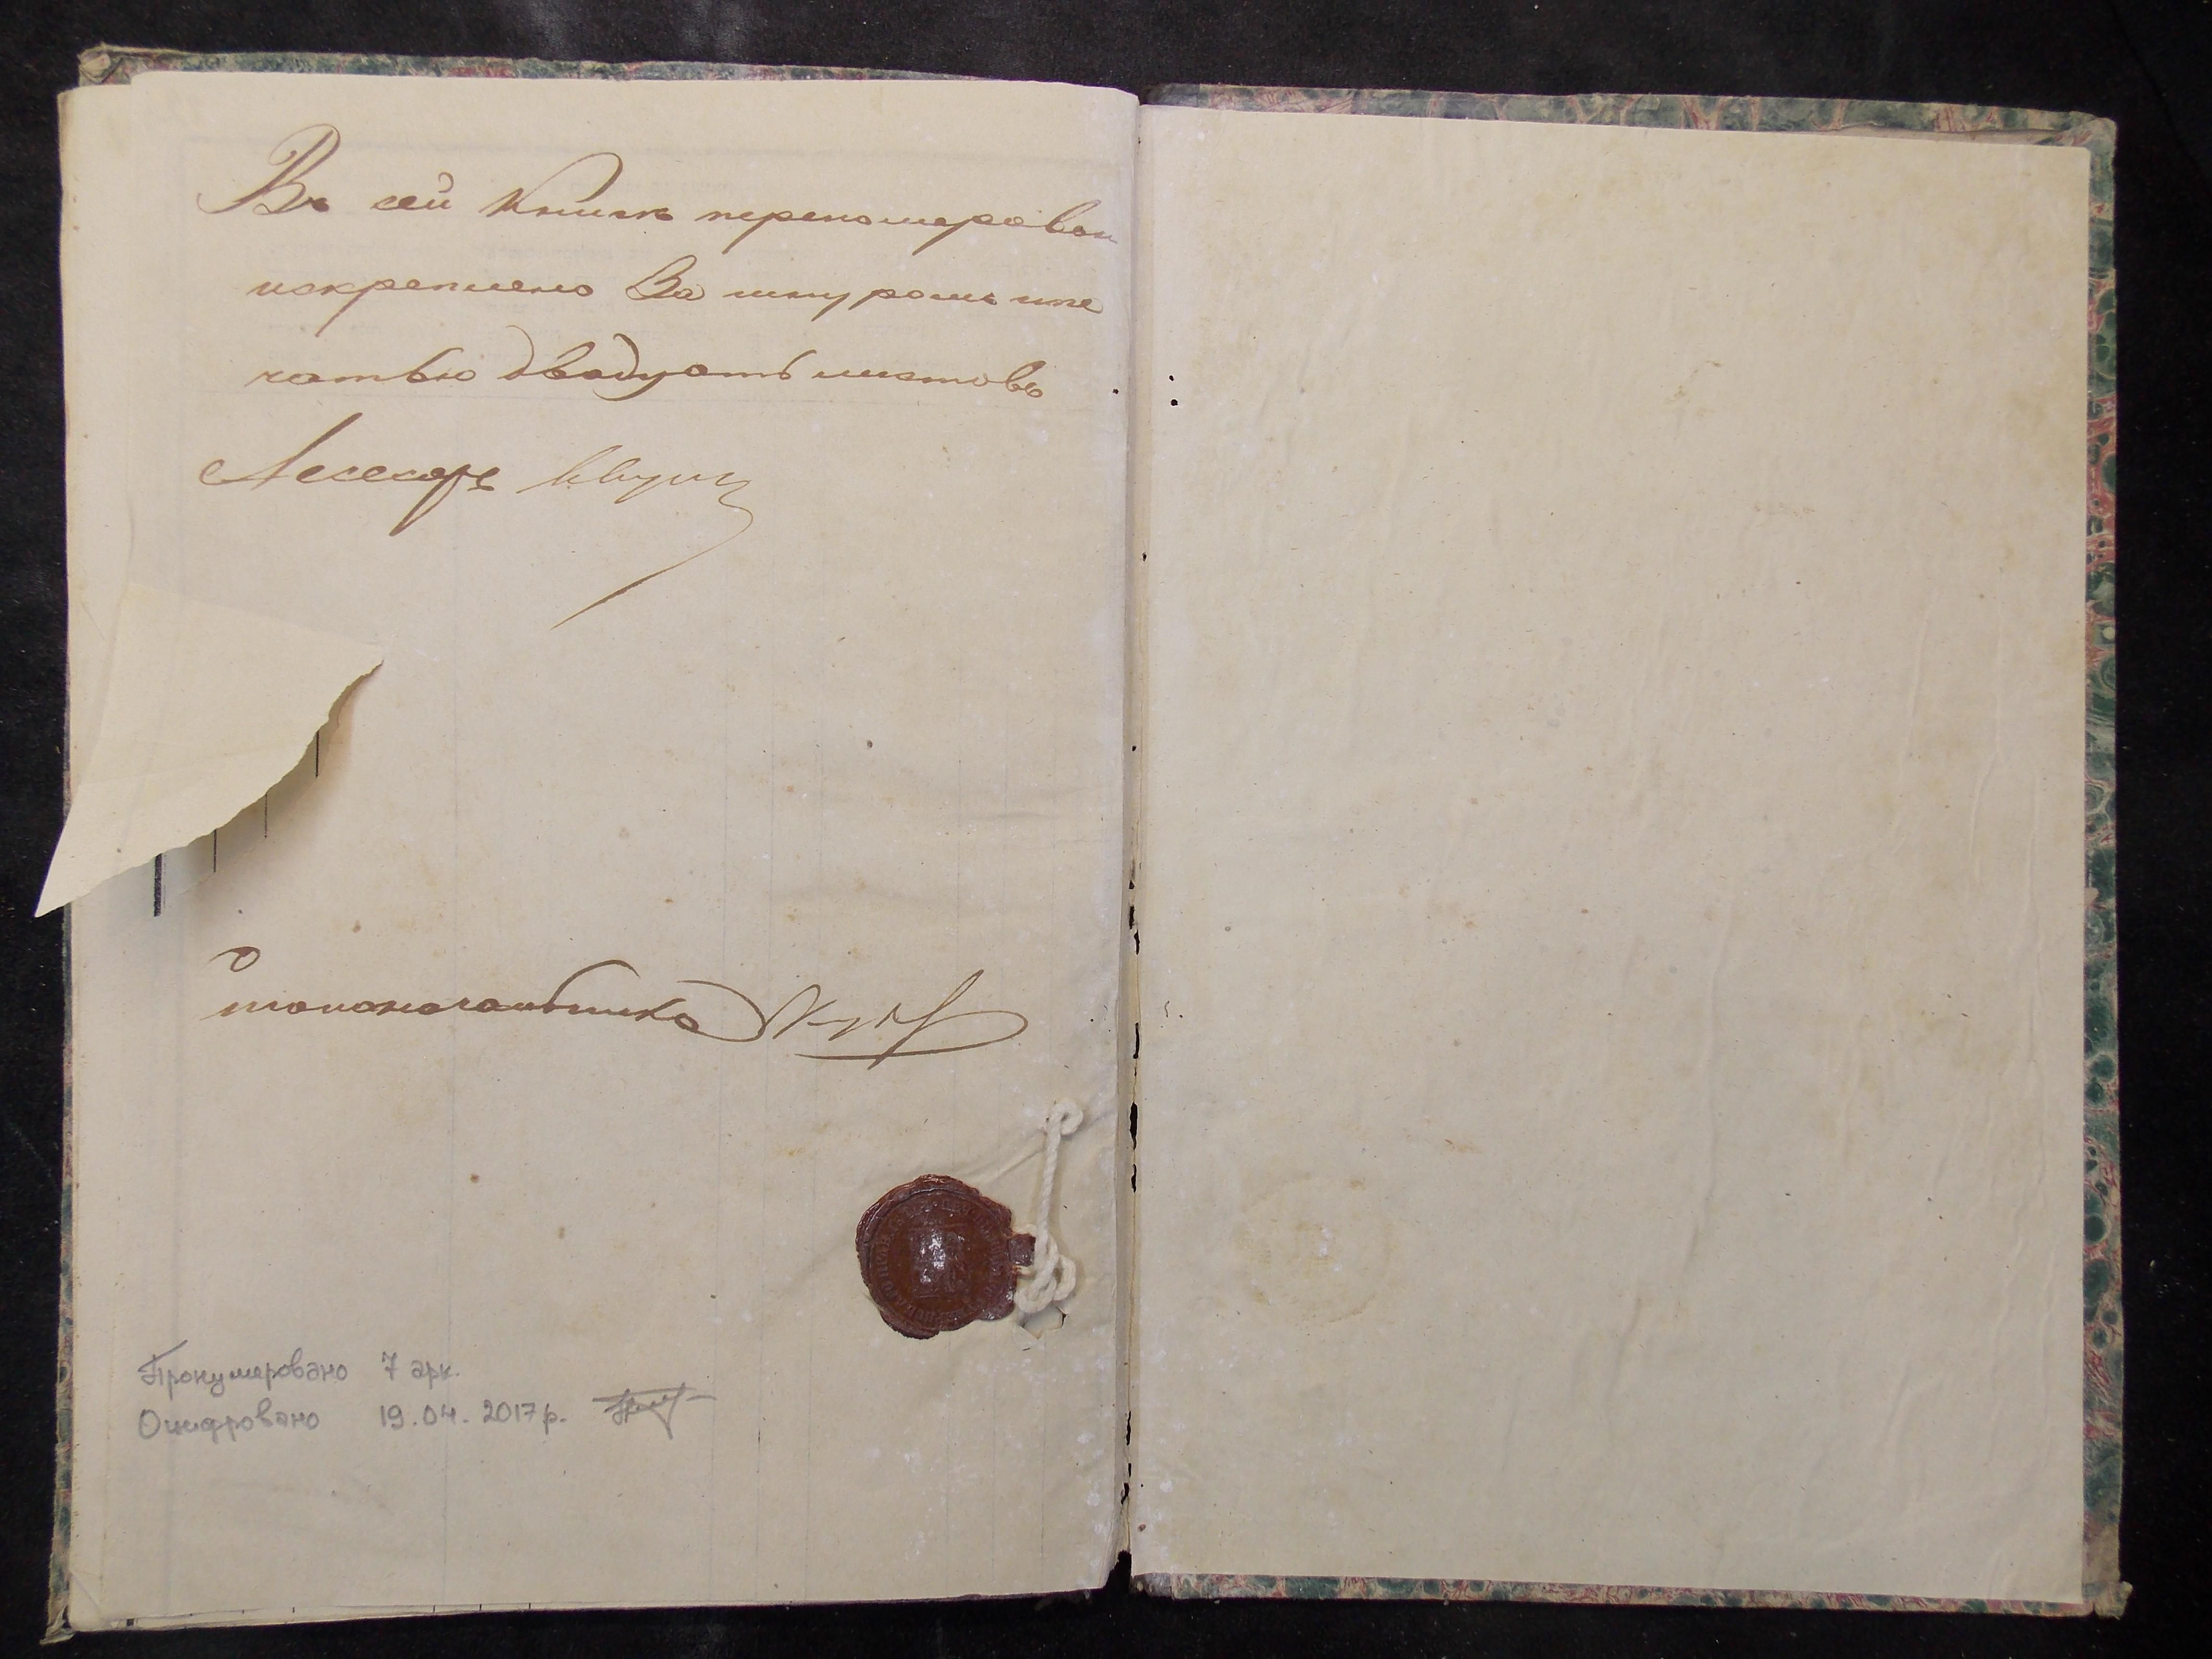 Въ сей Книгѣ перепомеровон
искреплено За шнуромъ ипе
чатью двадцать листовъ
Асесоръ
Столоначальника
Пронумеровано 7 арк.
Оцифровано 19.04.2017р.